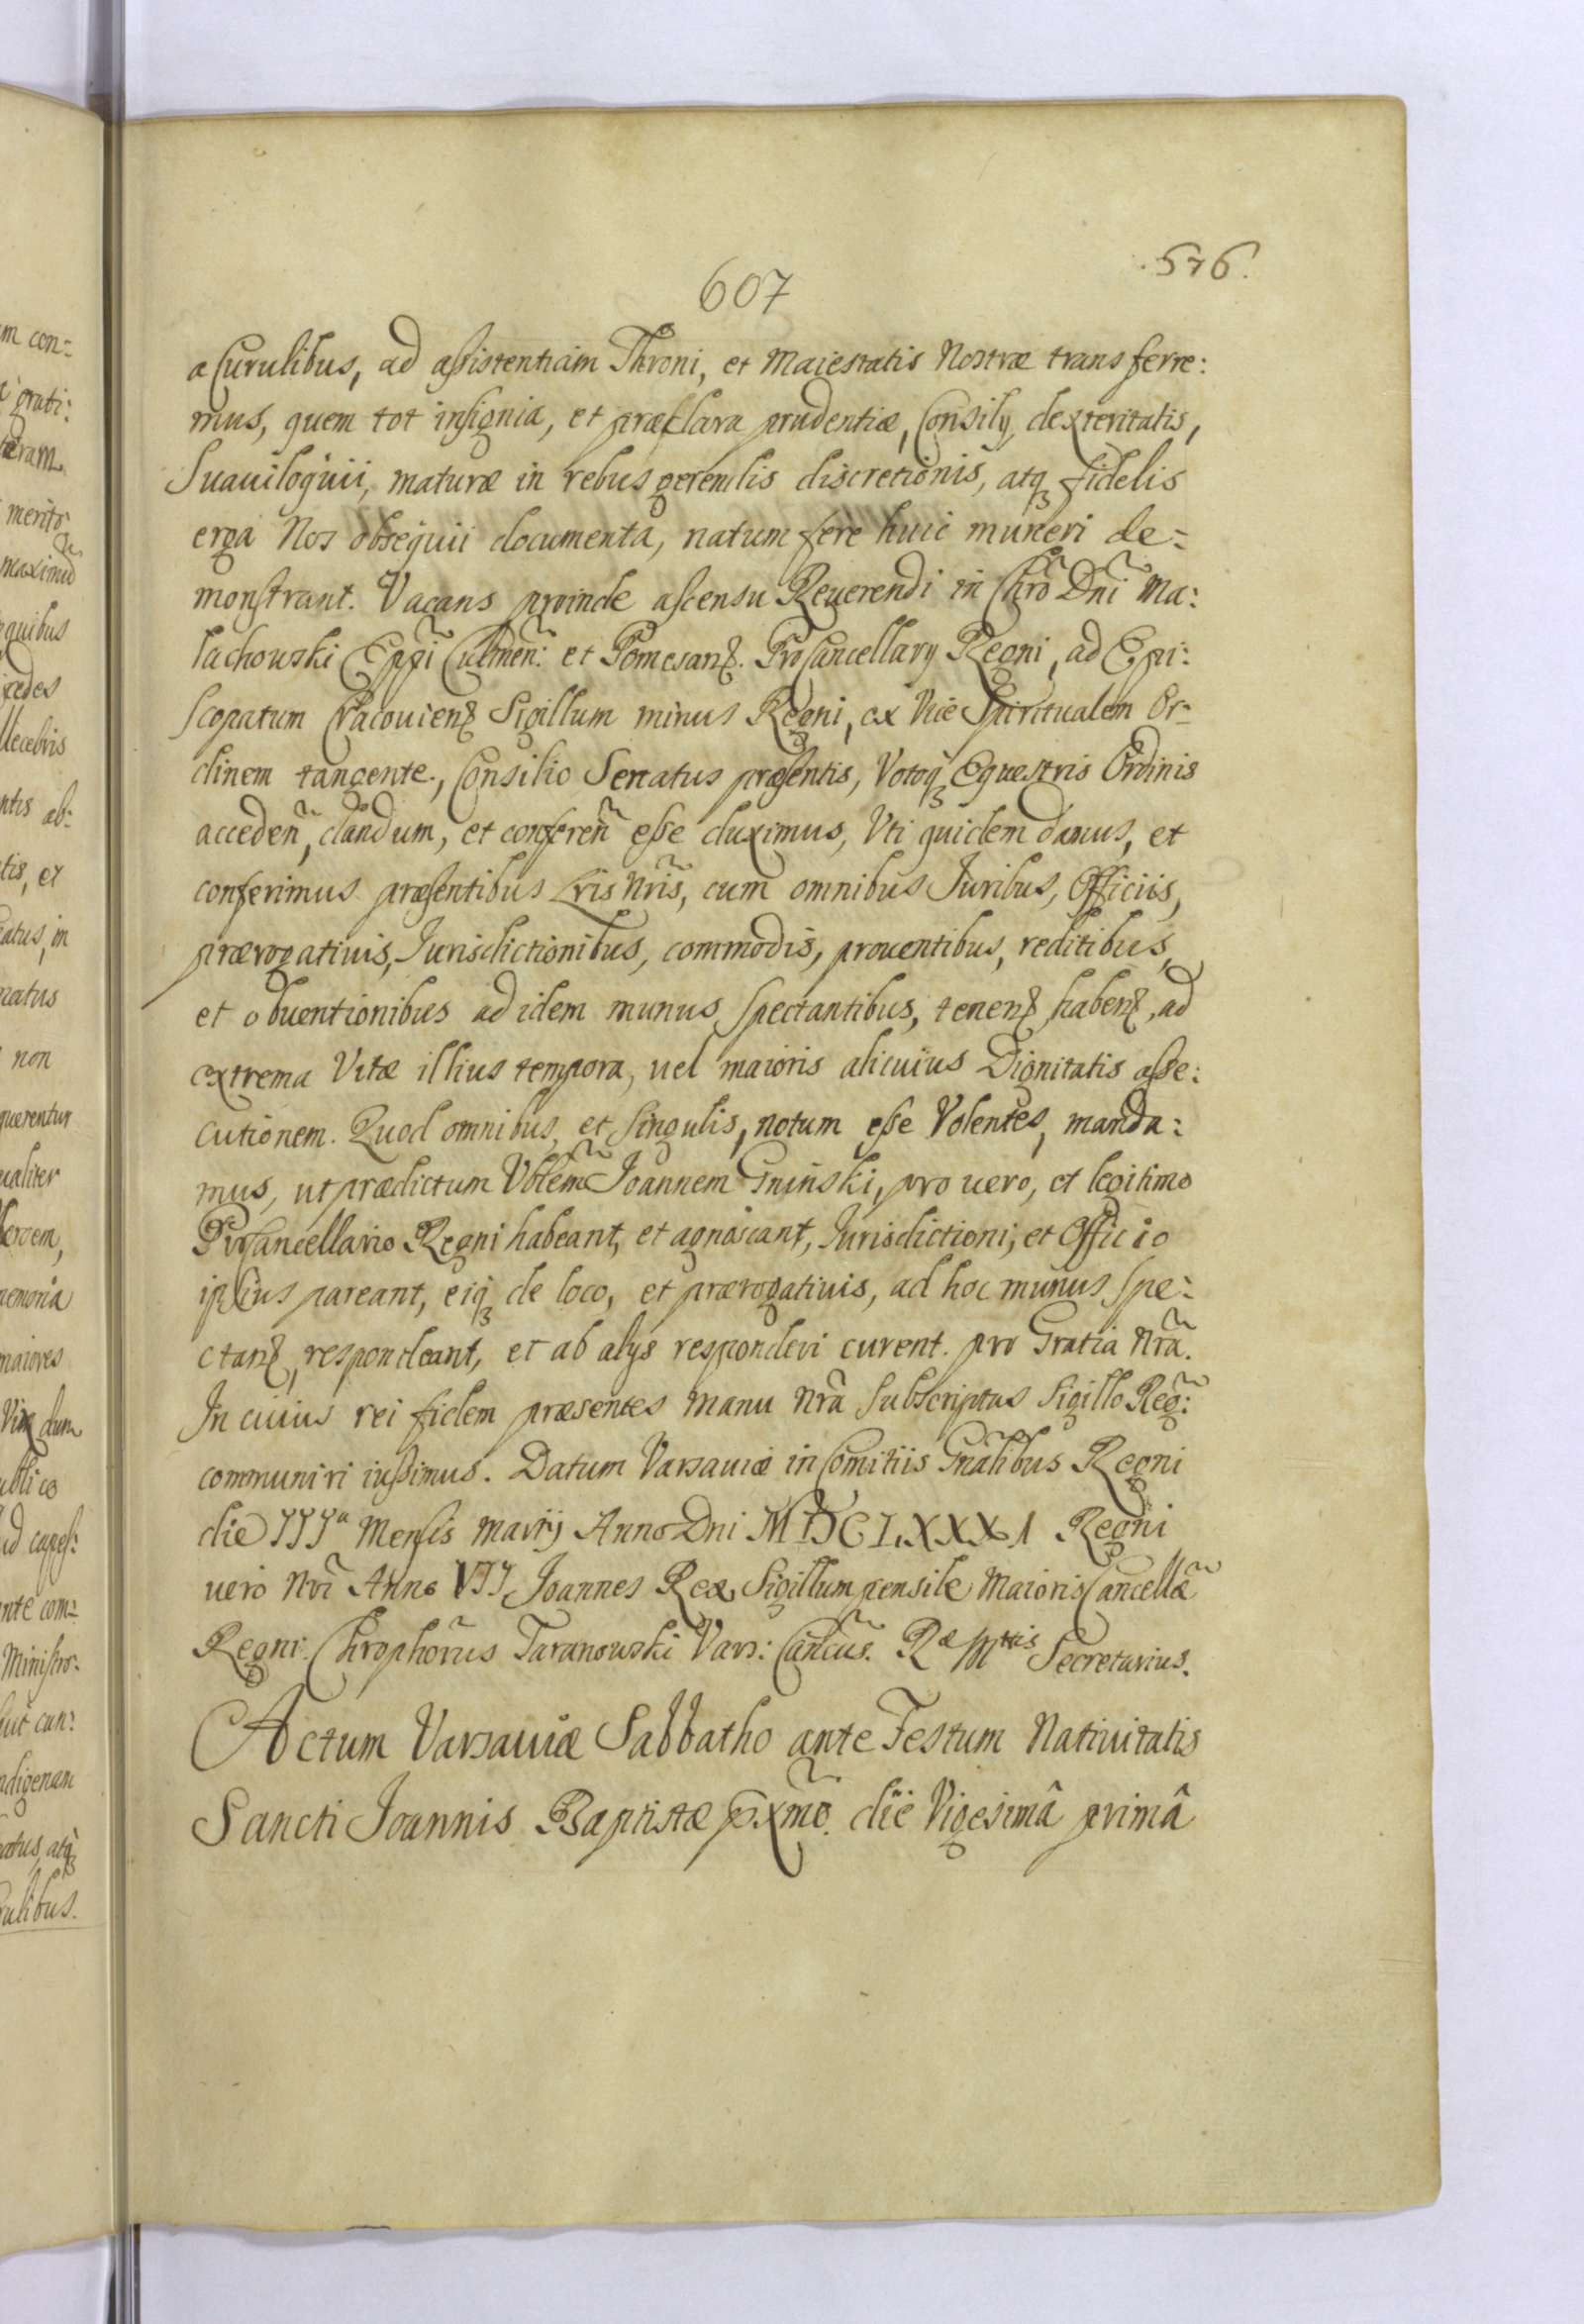 607
576.
a Curulibus, ad assistentiam Throni, et Maiestatis Nostræ trans ferre:
mus, quem tot insignia, et præclara prudentiæ, Consilÿ, dexteritatis,
Suauiloquii, maturæ in rebus gerendis discretionis, atq fidelis
erga Nos obsequii documenta, natum fere huic muneri de=
monstrant. Vacans proinde ascensu Reuerendi in Chrõ Dni Ma:
lachowski Eppi Culmeñ: et Pomesanꝫ. ProCancellarÿ Regni, ad Epi:
scopatum Cracouienꝫ Sigillum minus Regni, ex Vice Spiritualem Or=
dinem tangente, Consilio Senatus præsentis, Votoqꝫ Equestris Ordinis
accedeñ, dandum, et confereñ esse duximus, Vti quidem damus, et
conferimus præsentibus Lris Nris, cum omnibus Iuribus, Officiis,
prærogatiuis, Iurisdictionibus, commodis, prouentibus, reditibus,
et obuentionibus ad idem munus spectantibus, tenenꝫ habenꝫ, ad
extrema Vitæ illius tempora, uel maioris alicuius Dignitatis asse:
cutionem. Quod omnibus, et singulis, notum esse Volentes, manda:
mus, ut prædictum Vblem Ioannem Gninski, pro uero, et legitimo
ProCancellario Regni habeant, et agnoscant, Iurisdictioni, et Officio
ipsius pareant, eiqꝫ de loco, et prærogatiuis, ad hoc munus spe:
ctanꝫ, respondeant, et ab alÿs responderi curent. pro Gratia Nrã.
In cuius rei fidem præsentes manu Nrã Subscriptas Sigillo Reg:
communiri iussimus. Datum Varsauiæ in Comitiis Gnalibus Regni
die IIIa Mensis Martij Anno Dni MDCLXXXI Regni
uero Nri Anno VII Ioannes Rex. Sigillum pensile Maioris Cancellæ
Regni. Chrophorus Taranowski Vars: Cancus. Ræ Mttis Secretarius.
Actum Varsauiæ Sabbatho ante Festum Natiuitatis
Sancti Ioannis Baptistæ pxmo. die Vigesimâ primâ